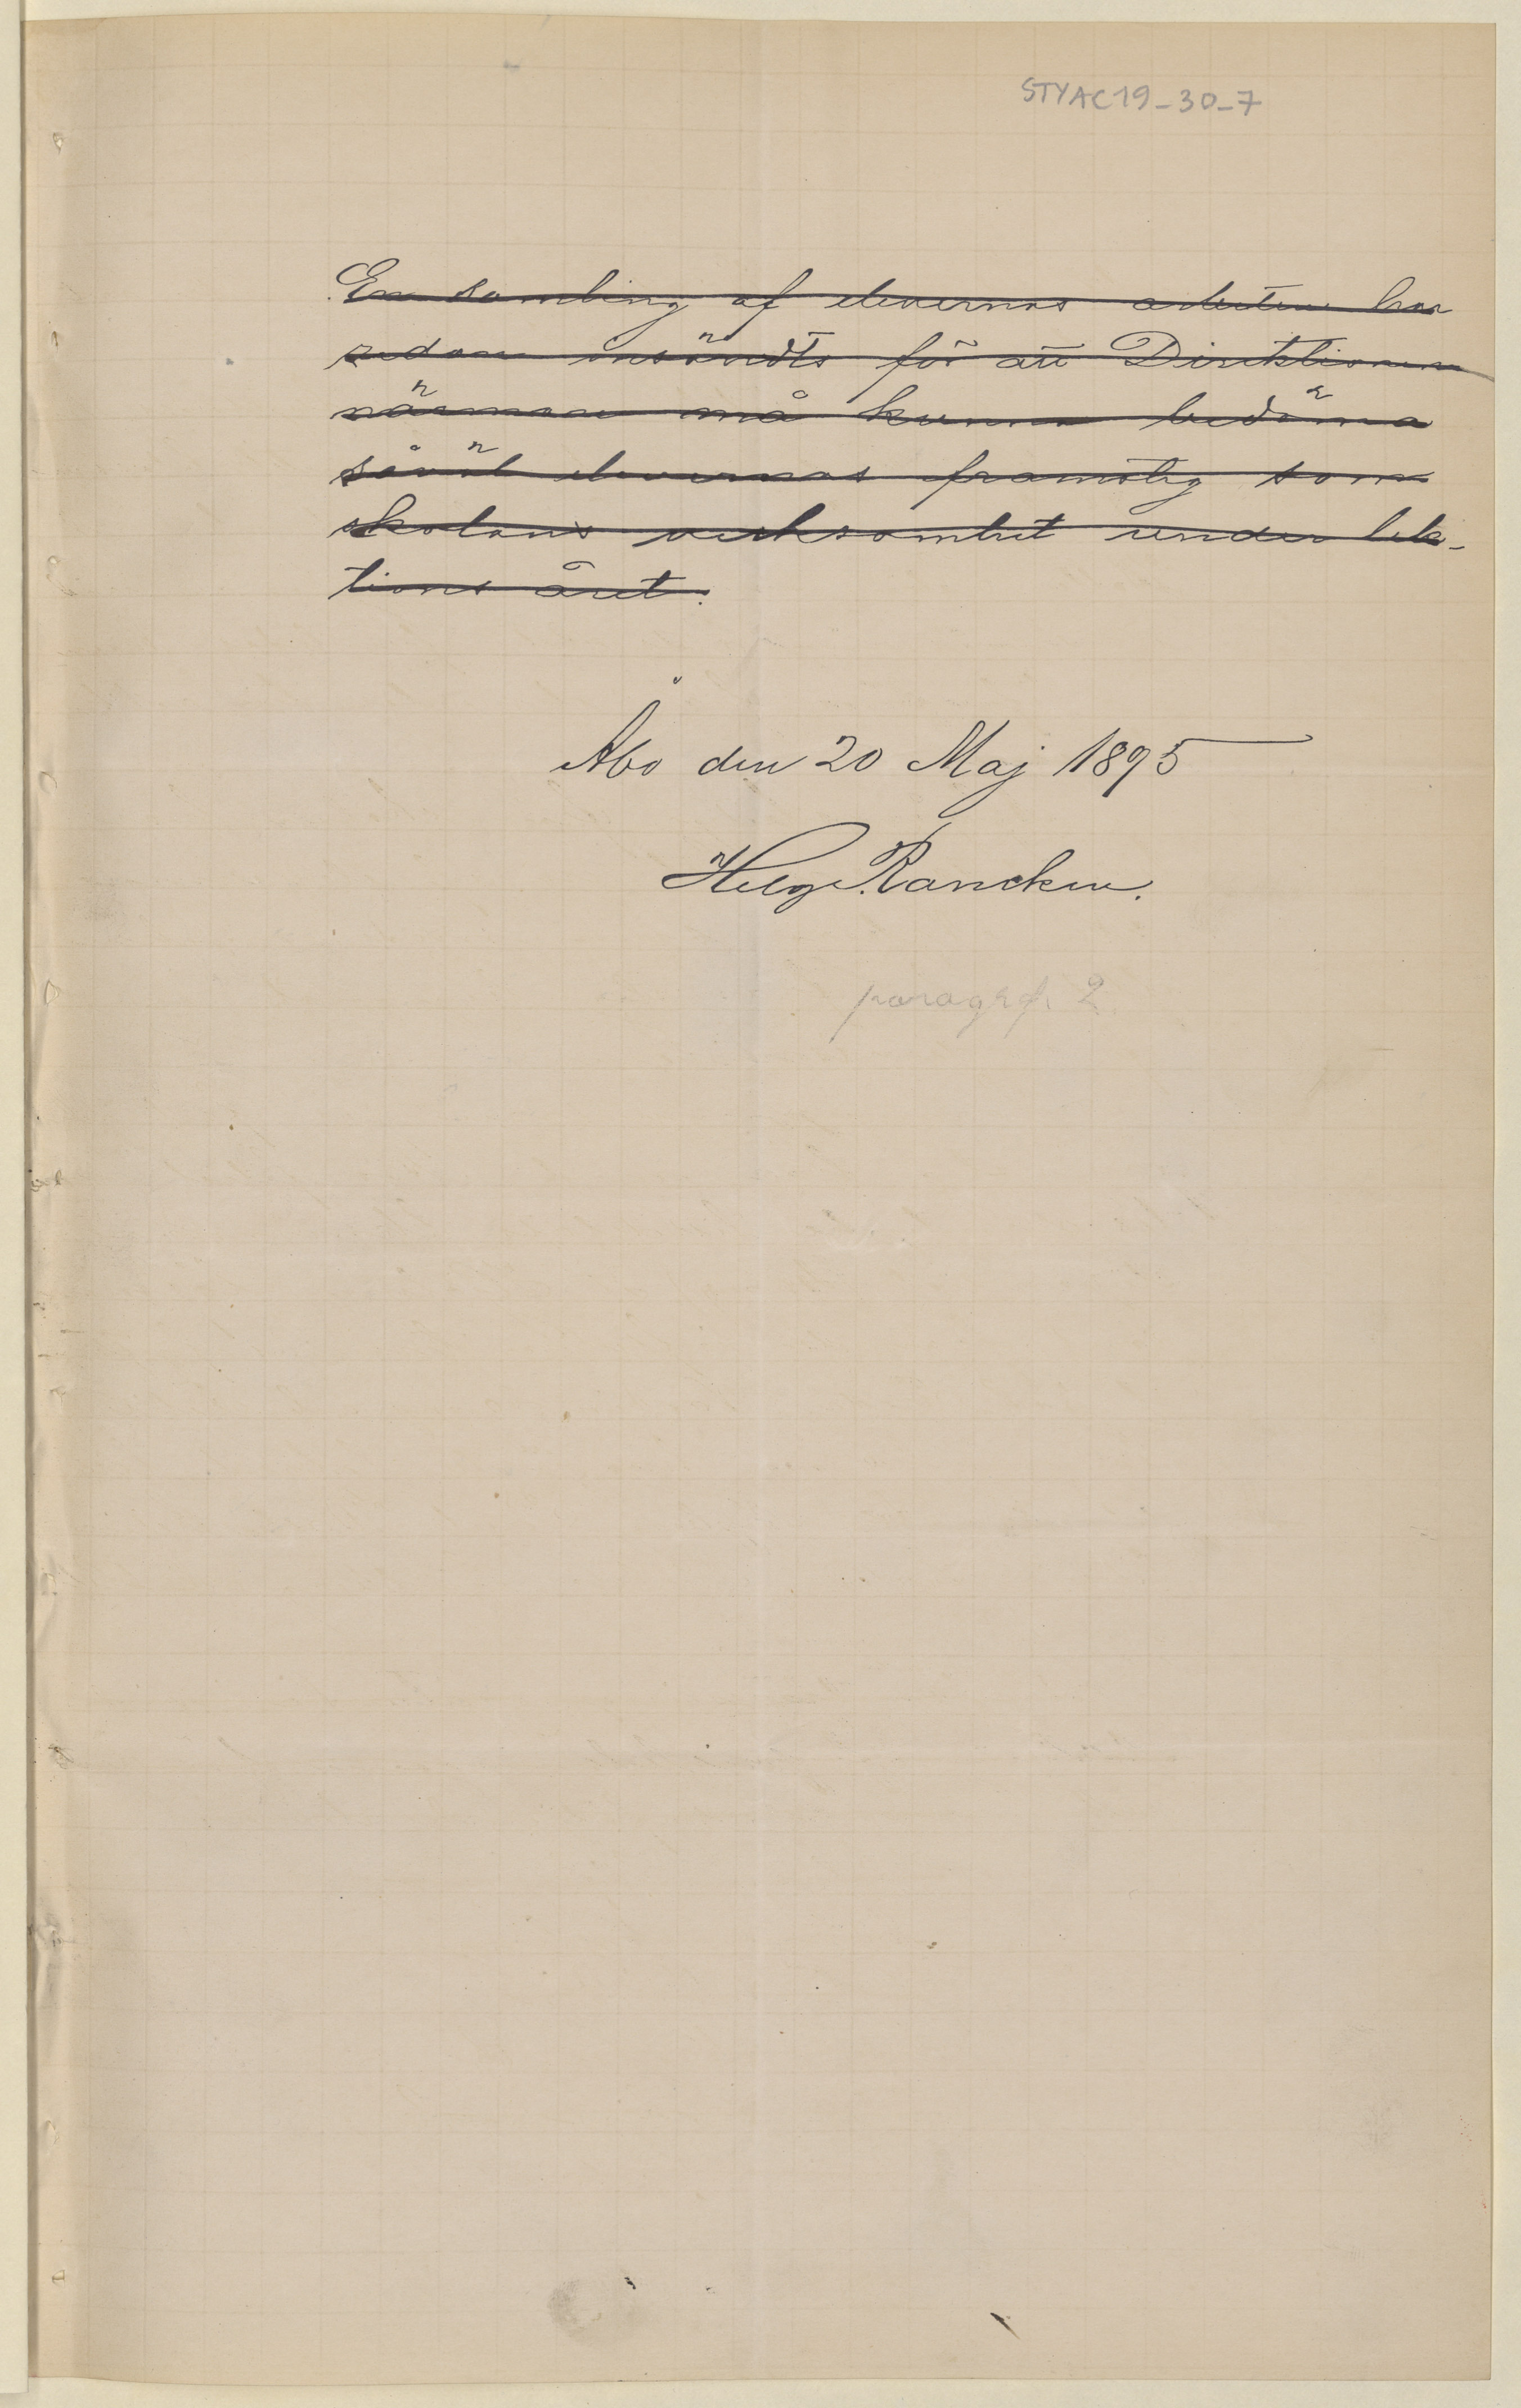 STYAC19_30_7
En samling af elevernas arbeten har
redan insändts för att Direktionen
närmare må kunna bedöma
såväl elevernas framsteg som
skolans verksamhet under lek-
tions året.
Åbo den 20 Maj 1895
Helge Rancken.
paragrf. 2